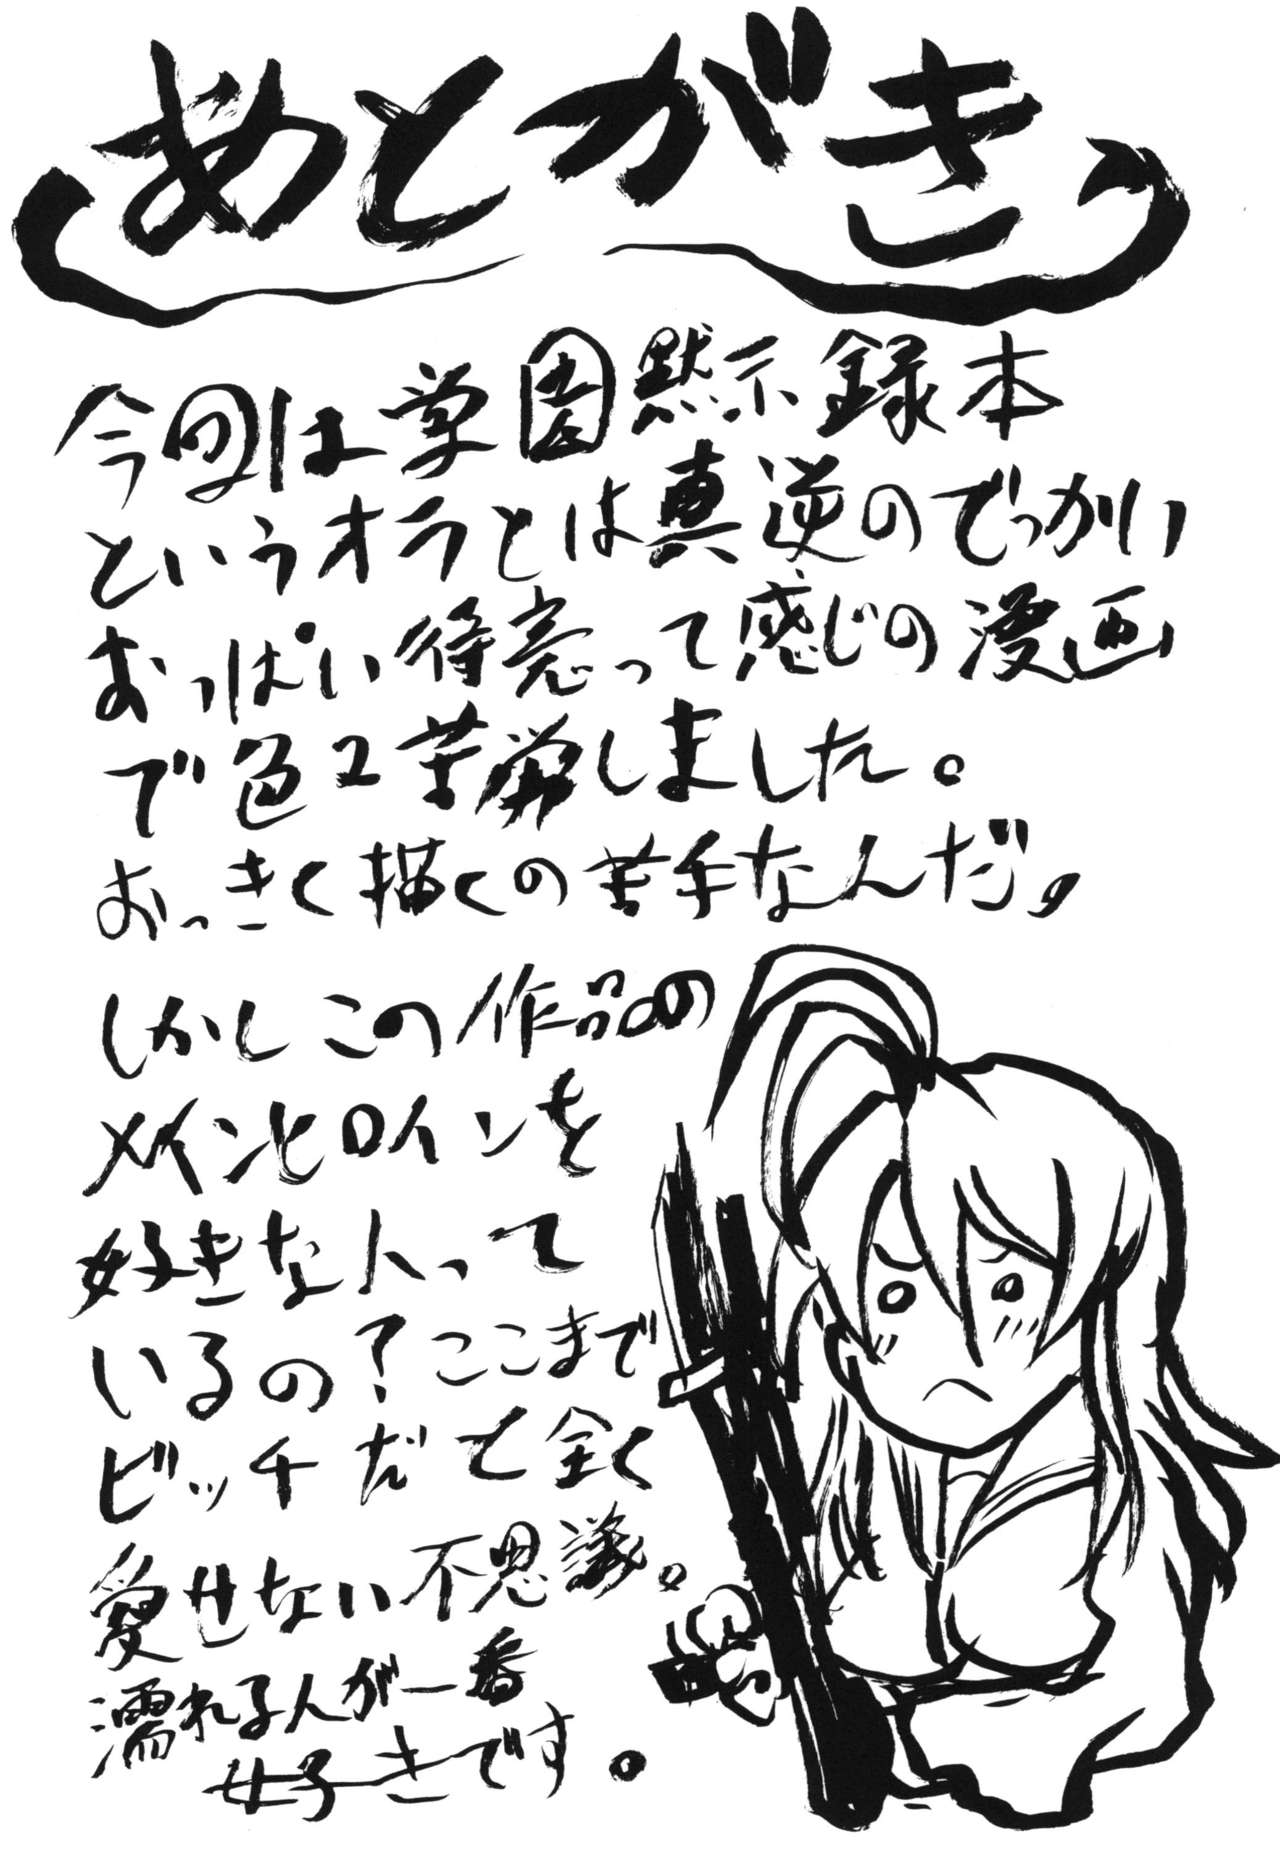 あとがき
今回は学園黙示録本
というオラとは真逆のでっかい
おっぱい待売って感じの漫画
で色々苦労しました。
おっきく描くの苦手なんだ、
しかしこの作品の
メインヒロインを
好きな人って
いるの？ここまで
ビッチだと全く
愛せない不思議。
濡れ子人が一番
好きです。